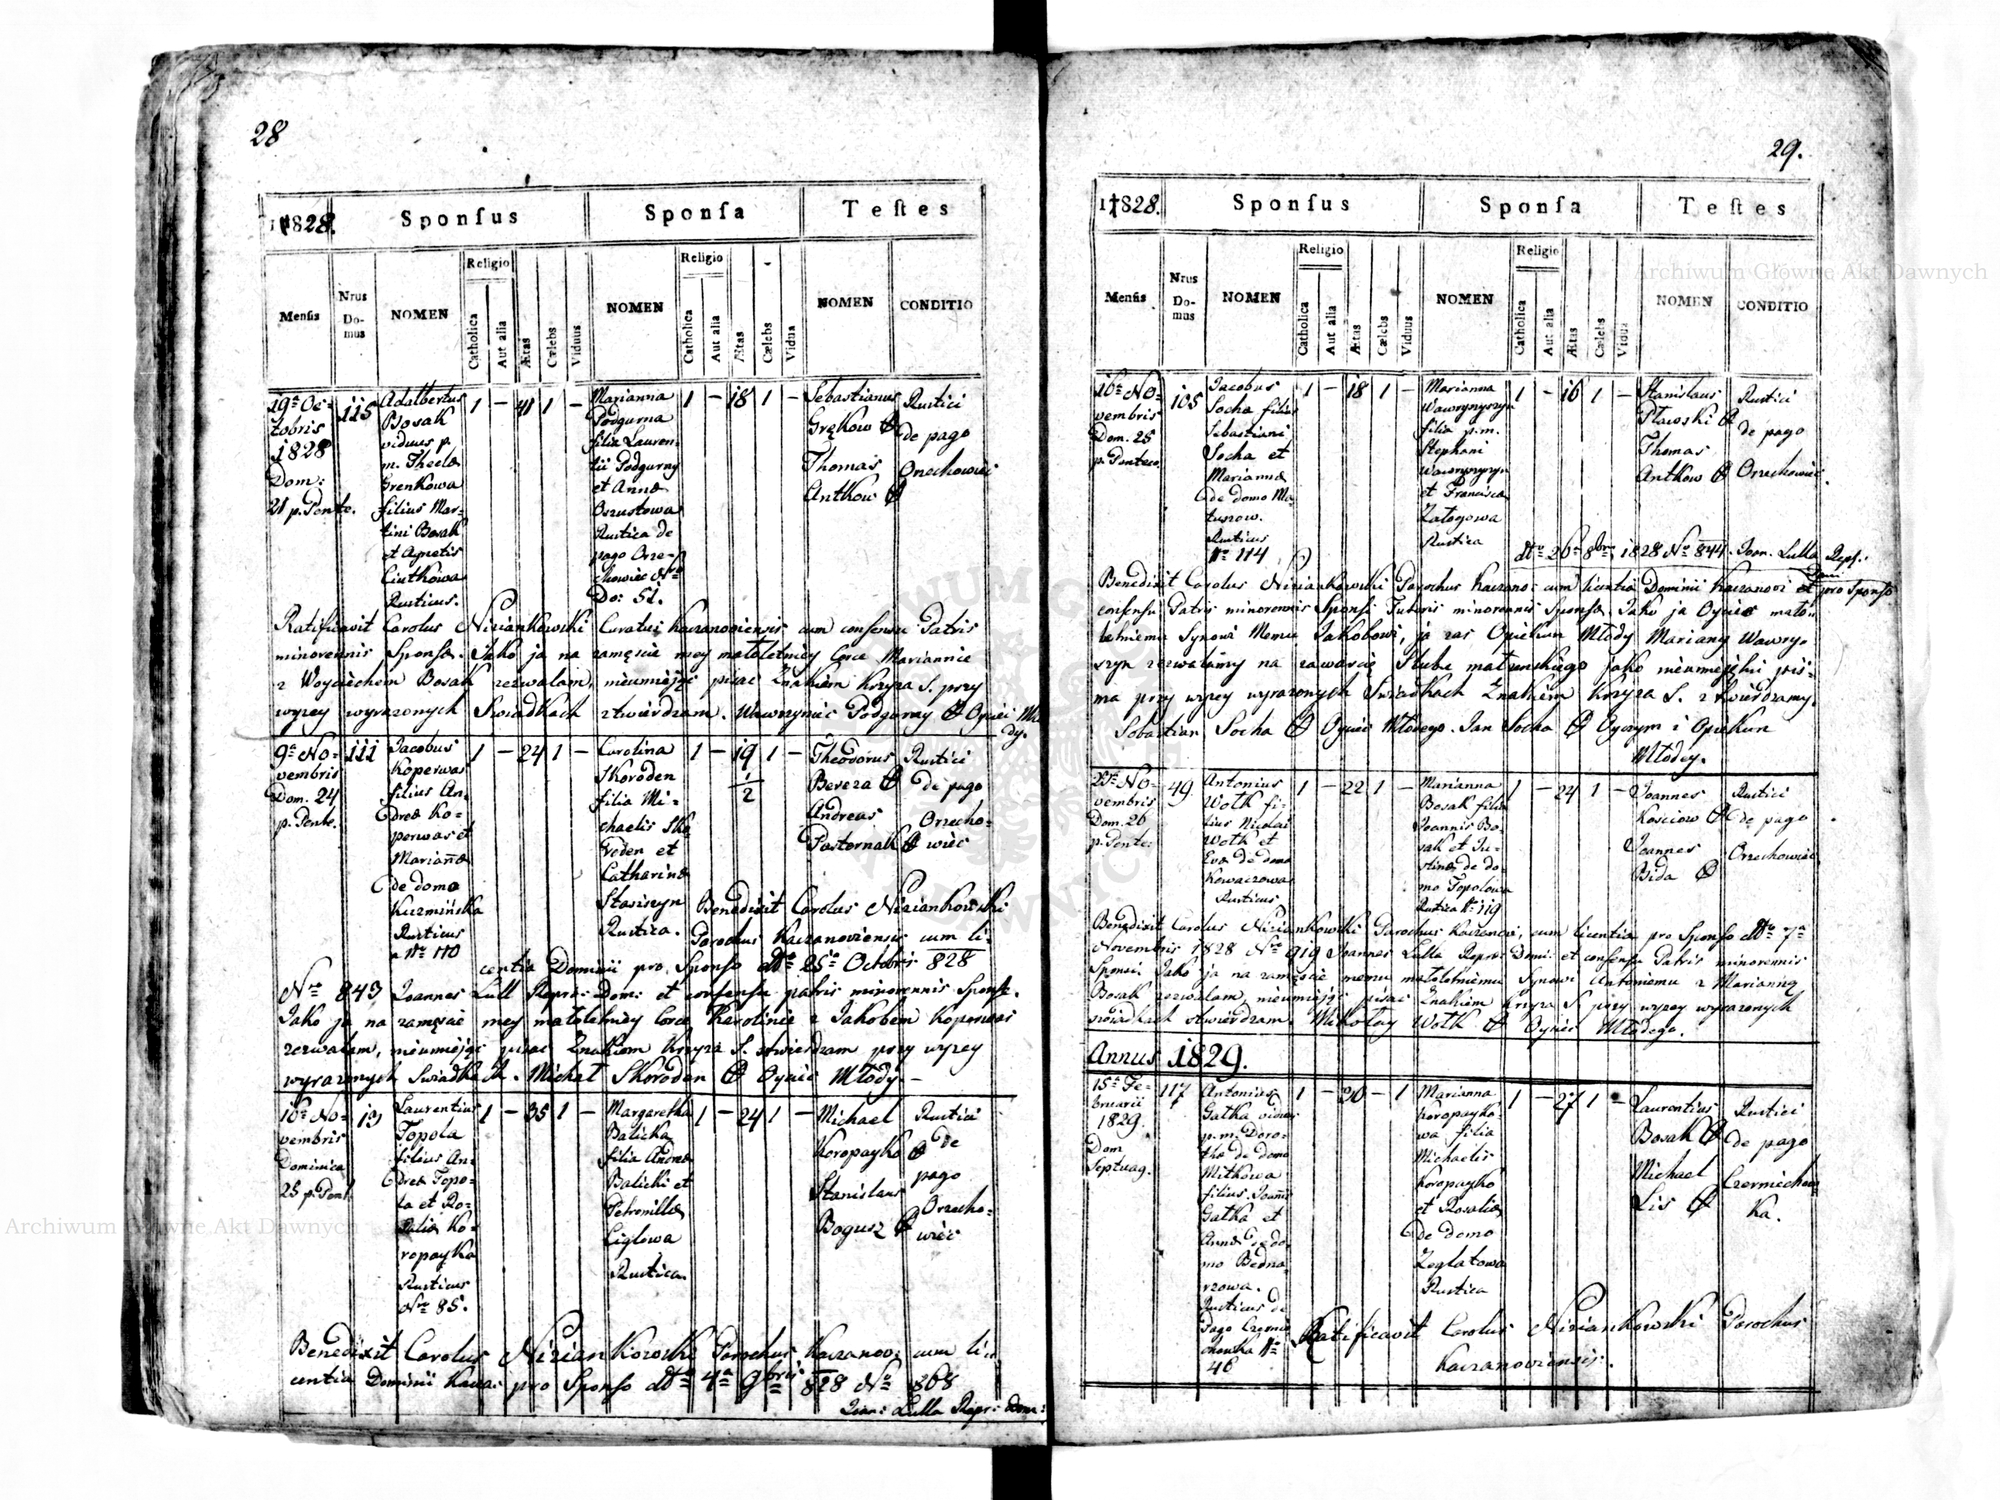 28
1828.
Sponsus
Sponsa
Testes
Religio
Religio
Mensis
Nrus Do-mus
NOMEN
Catholica
Aut alia
Ætas
Cælebs
Viduus
NOMEN
Catholica
Aut alia
Ætas
Cælebs
Vidua
NOMEN
CONDITIO
19a Oc-
tobris
1828
Dom:
21 p. Pente.
115
Adalbertus
Bosak
viduus p.
m. Theclæ
Grenkowa
filius Mar-
tini Bosak
et Agnetis
Ciutkowa
Rusticus.
1 - 41 1 -
Marianna
Podgurna
filia Lauren-
tii Podgurny
et Annæ
Oszustowa
Rustica de
pago Orze-
chowiec Nro
Do: 51.
1 - 18 1 -
Sebastianus
Grękow
Thomas
Antkow
Rustici
de pago
Orzechowiec
Ratificavit Carolus Niziankowski Curatus Kaczanoviensis cum consensu Patris
minorennis Sponsæ. Jako ja na zamęscie mey małoletniey Corce Mariannie
z Woyciechem Bosak zezwalam, nieumiejąc pisac Znakiem krzyza S. przy
wyzey wyrazonych Swiadkach ztwierdzam. Wawrzyniec Podgurny Oyciec Mło
dy.
9a No-
vembris
Dom. 24
p. Pente.
111
Jacobus
Koperwas
filius An-
dreæ Ko-
perwas et
Mariannæ
de domo
Kuzmińska
Rusticus
a Nro 110
1 - 24 1 -
Carolina
Skoroden
filia Mi-
chaelis Sko-
roden et
Catharinæ
Stasiszyn
Rustica.
1 - 19 1 -
1/2
Theodorus
Bereza
Andreas
Pasternak
Rustici
de pago
Orzecho-
wiec
Benedixit Carolus Niziankowski
Parochus Kaczanoviensis cum li-
centia Dominii pro Sponso dto 25a Octobris 828
Nro 843 Joannes Lull Repræ: Dom: et consensu patris minorennis Sponsæ.
Jako ja na zamęscie mey małoletniey Corce Karolinie z Jakobem Koperwas
zezwalam, nieumiejąc pisac Znakiem Krzyza S. stwierdzam przy wyzey
wyrazonych Swiadkach. Michał Skoroden Oyciec Młody. -
16a No-
vembris
Dominica
25 p. Pent.
13
Laurentius
Topola
filius An-
dreæ Topo-
la et Ro-
saliæ Ko-
ropayka
Rusticus
Nro 85.
1 - 35 1 -
Margaretha
Balicka
filia Andreæ
Balicki et
Petronillæ
Ciglowa
Rustica
1 - 24 1 -
Michael
Koropayko
Stanislaus
Bogusz
Rustici
de
pago
Orzecho-
wiec
Benedixit Carolus Niziankowski Parochus Kaczanov: cum li-
centia Dominii Kacza: pro Sponso dto 4a 9bris 828 Nro 868
Joan: Lulla Repr: Dom:
29.
1828.
Sponsus
Sponsa
Testes
Religio
Religio
Mensis
Nrus Do-mus
NOMEN
Catholica
Aut alia
Ætas
Cælebs
Viduus
NOMEN
Catholica
Aut alia
Ætas
Cælebs
Vidua
NOMEN
CONDITIO
16a No-
vembris
Dom. 25
p. Pentec.
105
Jacobus
Socha filius
Sebastiani
Socha et
Mariannæ
de domo Ma-
tusow.
Rusticus
Nro 114
1 - 18 1 -
Marianna
Wawrynyszyn
filia p.m.
Stephani
Wawrynyszyn
et Franciscæ
Załogowa
Rustica
1 - 16 1 -
Stanislaus
Pławski
Thomas
Antkow
Rustici
de pago
Orzechowiec.
dto 26a 8bris 1828 Nro 844. Joan. Lulla Repr.
Dom
pro Sponso
Benedixit Carolus Niziankowski Parochus Kaczano: cum licentia Dominii Kaczanovi et
consensu Patris minorennis Sponsi Tutoris minorennis Sponsæ. Jako ja Oyciec mało-
letniemu Synowi Memu Jakobowi, ja zas Opiekun Młody Maryany Wawry-
szyn zezwalamy na zawarcie Slubu małzenskiego jako nieumiejętni pis-
ma przy wyzey wyrazonych Swiadkach Znakiem krzyza S. ztwierdzamy.
Sebastian Socha Oyciec Młodego. Jan Socha Oyczym i Opiekun
Młodey.
23a No-
vembris
Dom. 26
p. Pente:
49
Antonius
Wołk fi-
lius Nicolai
Wołk et
Evæ de domo
Kowaczowa
Rusticus
1 - 22 1 -
Marianna
Bosak filia
Joannis Bo-
sak et Ju-
stinæ de do-
mo Topolowa
Rustica Nro 119
1 - 24 1 -
Joannes
Kosciow
Joannes
Bida
Rustici
de pago
Orzechowiec
Benedixit Carolus Niziankowski Parochus Kaczanov, cum licentia pro Sponso dto 7a
Novembris 1828 Nro 919 Joannes Lulla Repræ: Domi: et consensu Patris minorennis
Sponsi. Jako ja na zamęscie memu małoletniemu Synowi Antoniemu z Marianną
Bosak zezwalam, nieumiejąc pisac Znakiem krzyza S. przy wyzey wyrazonych
swiadkach stwierdzam. Mikołay Wołk Oyciec Młodego.
Annus 1829.
15a Fe-
bruarii
1829.
Dom
Septuag.
117
Antonius
Gatka viduus
p.m. Doro-
theæ de domo
Mitkowa
filius Joannis
Gatka et
Annæ de do-
mo Bedna-
rzowa.
Rusticus de
Pago Czerni-
chowka Nro
46
1 - 30 - 1
Marianna
Koropayko-
wa filia
Michaelis
Koropayko
et Rosaliæ
de domo
Zeglatowa
Rustica
1 - 27 1 -
Laurentius
Bosak
Michael
Lis
Rustici
de pago
Czerniechow-
ka.
Ratificavit Carolus Niziankowski Parochus
Kaczanoviensis.
Archiwum Główne Akt Dawnych
Archiwum Główne Akt Dawnych